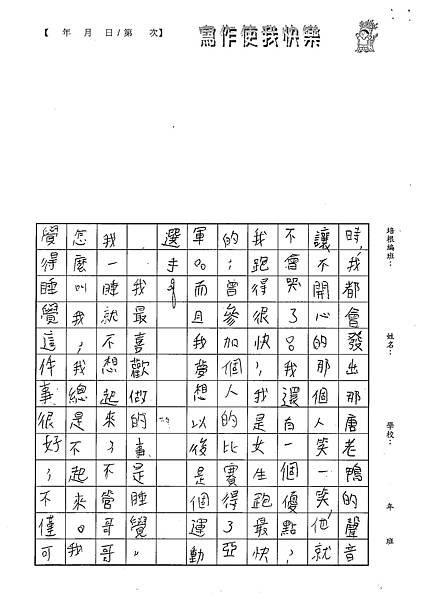 【 年 月 日/第 次】
寫作使我快樂
培根編班：
姓名：
學校：
年 班
時，我都會發出那唐老鴨的聲音
讓不開心的那個人笑一笑，他就
不會哭了！我還有一個優點，
我跑得很快，我是女生跑最快
的，曾參加個人的比賽得了亞
軍。而且我夢想以後是個運動
選手
，我最不喜歡做的事是睡覺。
我一睡就不想起來了，不管哥哥
怎麼叫我，我總是不起來。我
覺得睡覺這件事很好，不僅可